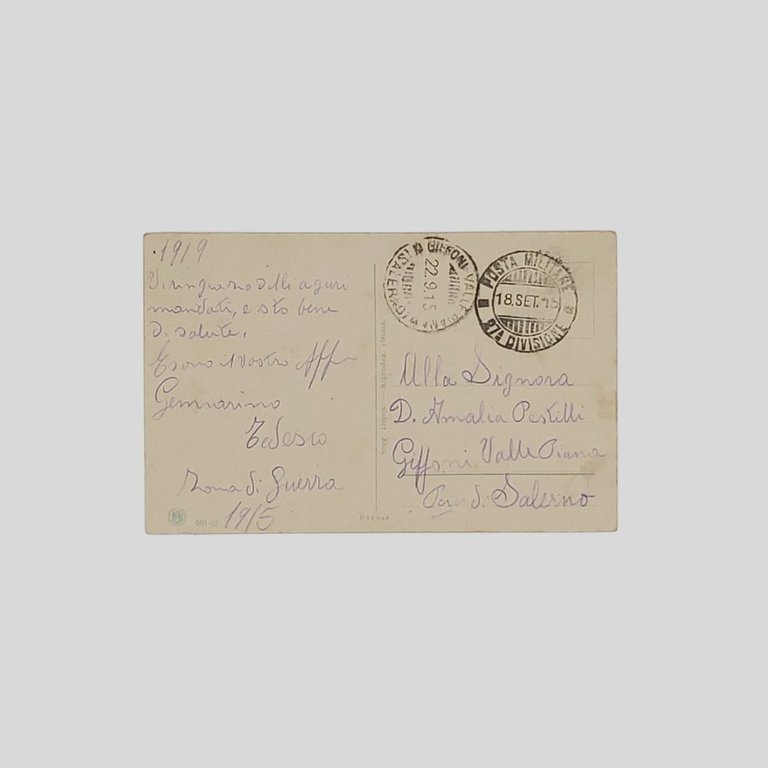 1919
Vi ringrazio delli aguri
mandati, e sto bene
di salute.
E sono il vostro Aff
Gennarino
Tedesco
Zona di Guerra
1915
GIFFONI VALLE PIANA
(SALERNO)
22.9.15
POSTA MILITARE
18.SET.15
27ª DIVISIONE
Alla Signora
D. Amalia Pestilli
Giffoni Valle Piana
di Salerno
Riproduz. Vietata.